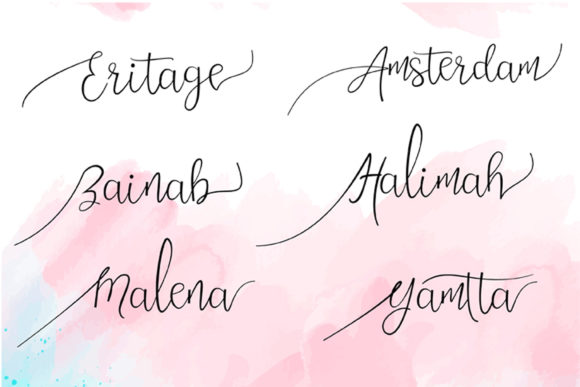 Eritage Amsterdam
Zainab Halimah
Malena Yamtta